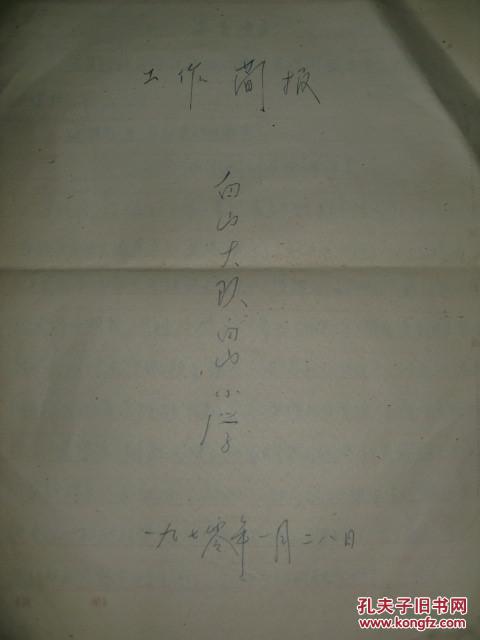 工作简报
向山大队向山小学
一九七零年一月二八日
孔夫子旧书网
www.kongfz.com